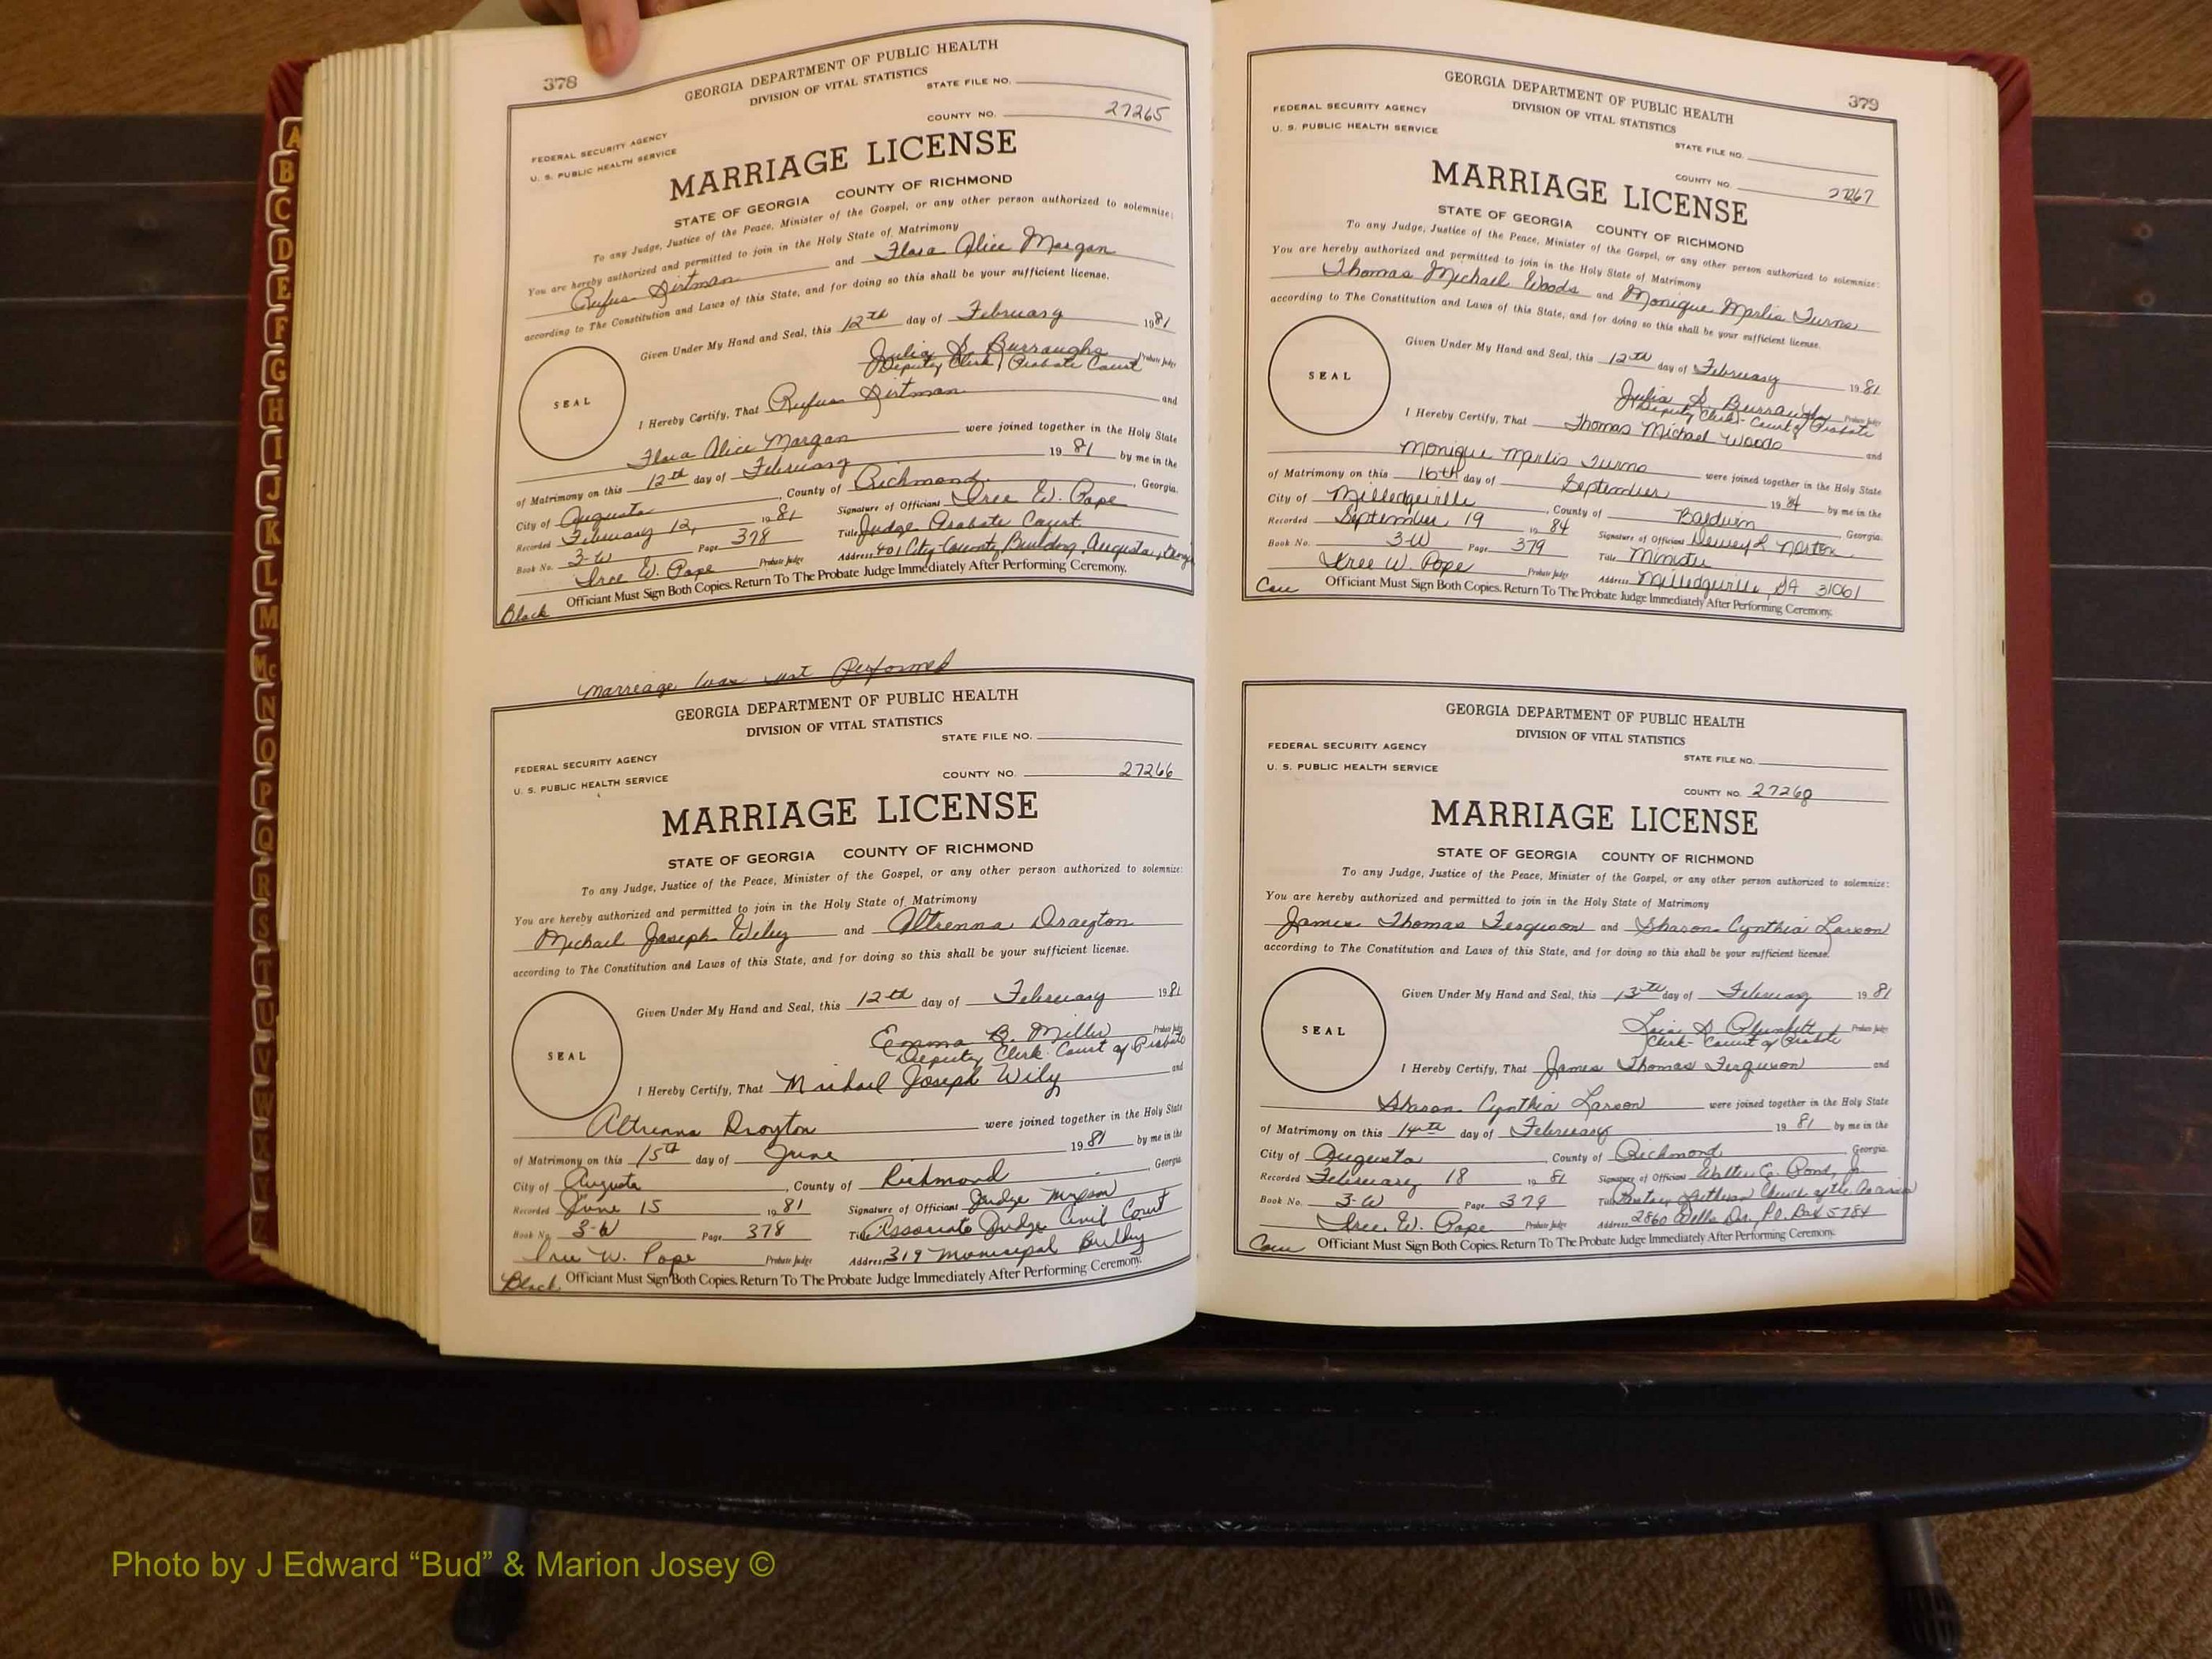 378
GEORGIA DEPARTMENT OF PUBLIC HEALTH
DIVISION OF VITAL STATISTICS
STATE FILE NO.
COUNTY NO. 27265
FEDERAL SECURITY AGENCY
U. S. PUBLIC HEALTH SERVICE
MARRIAGE LICENSE
STATE OF GEORGIA COUNTY OF RICHMOND
To any Judge, Justice of the Peace, Minister of the Gospel, or any other person authorized to solemnize:
You are hereby authorized and permitted to join in the Holy State of Matrimony
Rufus and Flora Alice Morgan
according to The Constitution and Laws of this State, and for doing so this shall be your sufficient license.
Given Under My Hand and Seal, this 12th day of February 1981
Julia S. Burroughs Probate Judge
Deputy Clerk, Probate Court
SEAL
I Hereby Certify, That Rufus and
Flora Alice Morgan were joined together in the Holy State
of Matrimony on this 12th day of February 1981 by me in the
City of Augusta, County of Richmond, Georgia.
Recorded February 12, 1981 Signature of Officiant Iree W. Pope
Book No. 3-W Page 378 Title Judge Probate Court
Iree W. Pope Probate Judge Address 401 City-County Building, Augusta,
Black Officiant Must Sign Both Copies. Return To The Probate Judge Immediately After Performing Ceremony.
Marriage was not Performed
GEORGIA DEPARTMENT OF PUBLIC HEALTH
DIVISION OF VITAL STATISTICS
STATE FILE NO.
FEDERAL SECURITY AGENCY
U. S. PUBLIC HEALTH SERVICE
COUNTY NO. 27266
MARRIAGE LICENSE
STATE OF GEORGIA COUNTY OF RICHMOND
To any Judge, Justice of the Peace, Minister of the Gospel, or any other person authorized to solemnize:
You are hereby authorized and permitted to join in the Holy State of Matrimony
Michael Joseph Wiley and Altrenna Drayton
according to The Constitution and Laws of this State, and for doing so this shall be your sufficient license.
Given Under My Hand and Seal, this 12th day of February 1981
Emma B. Miller Probate Judge
Deputy Clerk Court of Probate
SEAL
I Hereby Certify, That Michael Joseph Wily and
Altrenna Drayton were joined together in the Holy State
of Matrimony on this 15th day of June 1981 by me in the
City of Augusta, County of Richmond, Georgia
Recorded June 15 1981 Signature of Officiant Judge
Book No. 3-W Page 378 Title Associate Judge Civil Court
Iree W. Pope Probate Judge Address 319 Municipal
Black Officiant Must Sign Both Copies. Return To The Probate Judge Immediately After Performing Ceremony.
379
GEORGIA DEPARTMENT OF PUBLIC HEALTH
DIVISION OF VITAL STATISTICS
FEDERAL SECURITY AGENCY
U. S. PUBLIC HEALTH SERVICE
STATE FILE NO.
COUNTY NO. 27267
MARRIAGE LICENSE
STATE OF GEORGIA COUNTY OF RICHMOND
To any Judge, Justice of the Peace, Minister of the Gospel, or any other person authorized to solemnize:
You are hereby authorized and permitted to join in the Holy State of Matrimony
Thomas Michael Woods and Monique Marlis
according to The Constitution and Laws of this State, and for doing so this shall be your sufficient license.
Given Under My Hand and Seal, this 12th day of February 1981
Julia S. Burroughs Probate Judge
Deputy Clerk - Court of Probate
SEAL
I Hereby Certify, That Thomas Michael Woods and
Monique Marlis were joined together in the Holy State
of Matrimony on this 16th day of September 1984 by me in the
City of Milledgeville, County of Baldwin, Georgia.
Recorded September 19 1984 Signature of Officiant Dewey L. Norton
Book No. 3-W Page 379 Title Minister
Iree W. Pope Probate Judge Address Milledgeville, GA 31061
Cau Officiant Must Sign Both Copies. Return To The Probate Judge Immediately After Performing Ceremony.
GEORGIA DEPARTMENT OF PUBLIC HEALTH
DIVISION OF VITAL STATISTICS
FEDERAL SECURITY AGENCY
U. S. PUBLIC HEALTH SERVICE
STATE FILE NO.
COUNTY NO. 27268
MARRIAGE LICENSE
STATE OF GEORGIA COUNTY OF RICHMOND
To any Judge, Justice of the Peace, Minister of the Gospel, or any other person authorized to solemnize:
You are hereby authorized and permitted to join in the Holy State of Matrimony
James Thomas Ferguson and Sharon Cynthia Larson
according to The Constitution and Laws of this State, and for doing so this shall be your sufficient license.
Given Under My Hand and Seal, this 13th day of February 1981
Lois S. Plunkett Probate Judge
Clerk - Court of Probate
SEAL
I Hereby Certify, That James Thomas Ferguson and
Sharon Cynthia Larson were joined together in the Holy State
of Matrimony on this 14th day of February 1981 by me in the
City of Augusta, County of Richmond, Georgia
Recorded February 18 1981 Signature of Officiant Walter C. Jr.
Book No. 3-W Page 379 Title Lutheran Church of the
Iree W. Pope Probate Judge Address 2860 Dr. P.O. Box 5784
Cau Officiant Must Sign Both Copies. Return To The Probate Judge Immediately After Performing Ceremony.
A
B
C
D
E
F
G
H
I
J
K
L
M
Mc
N
O
P
Q
R
S
T
U
V
W
Photo by J Edward “Bud” & Marion Josey ©